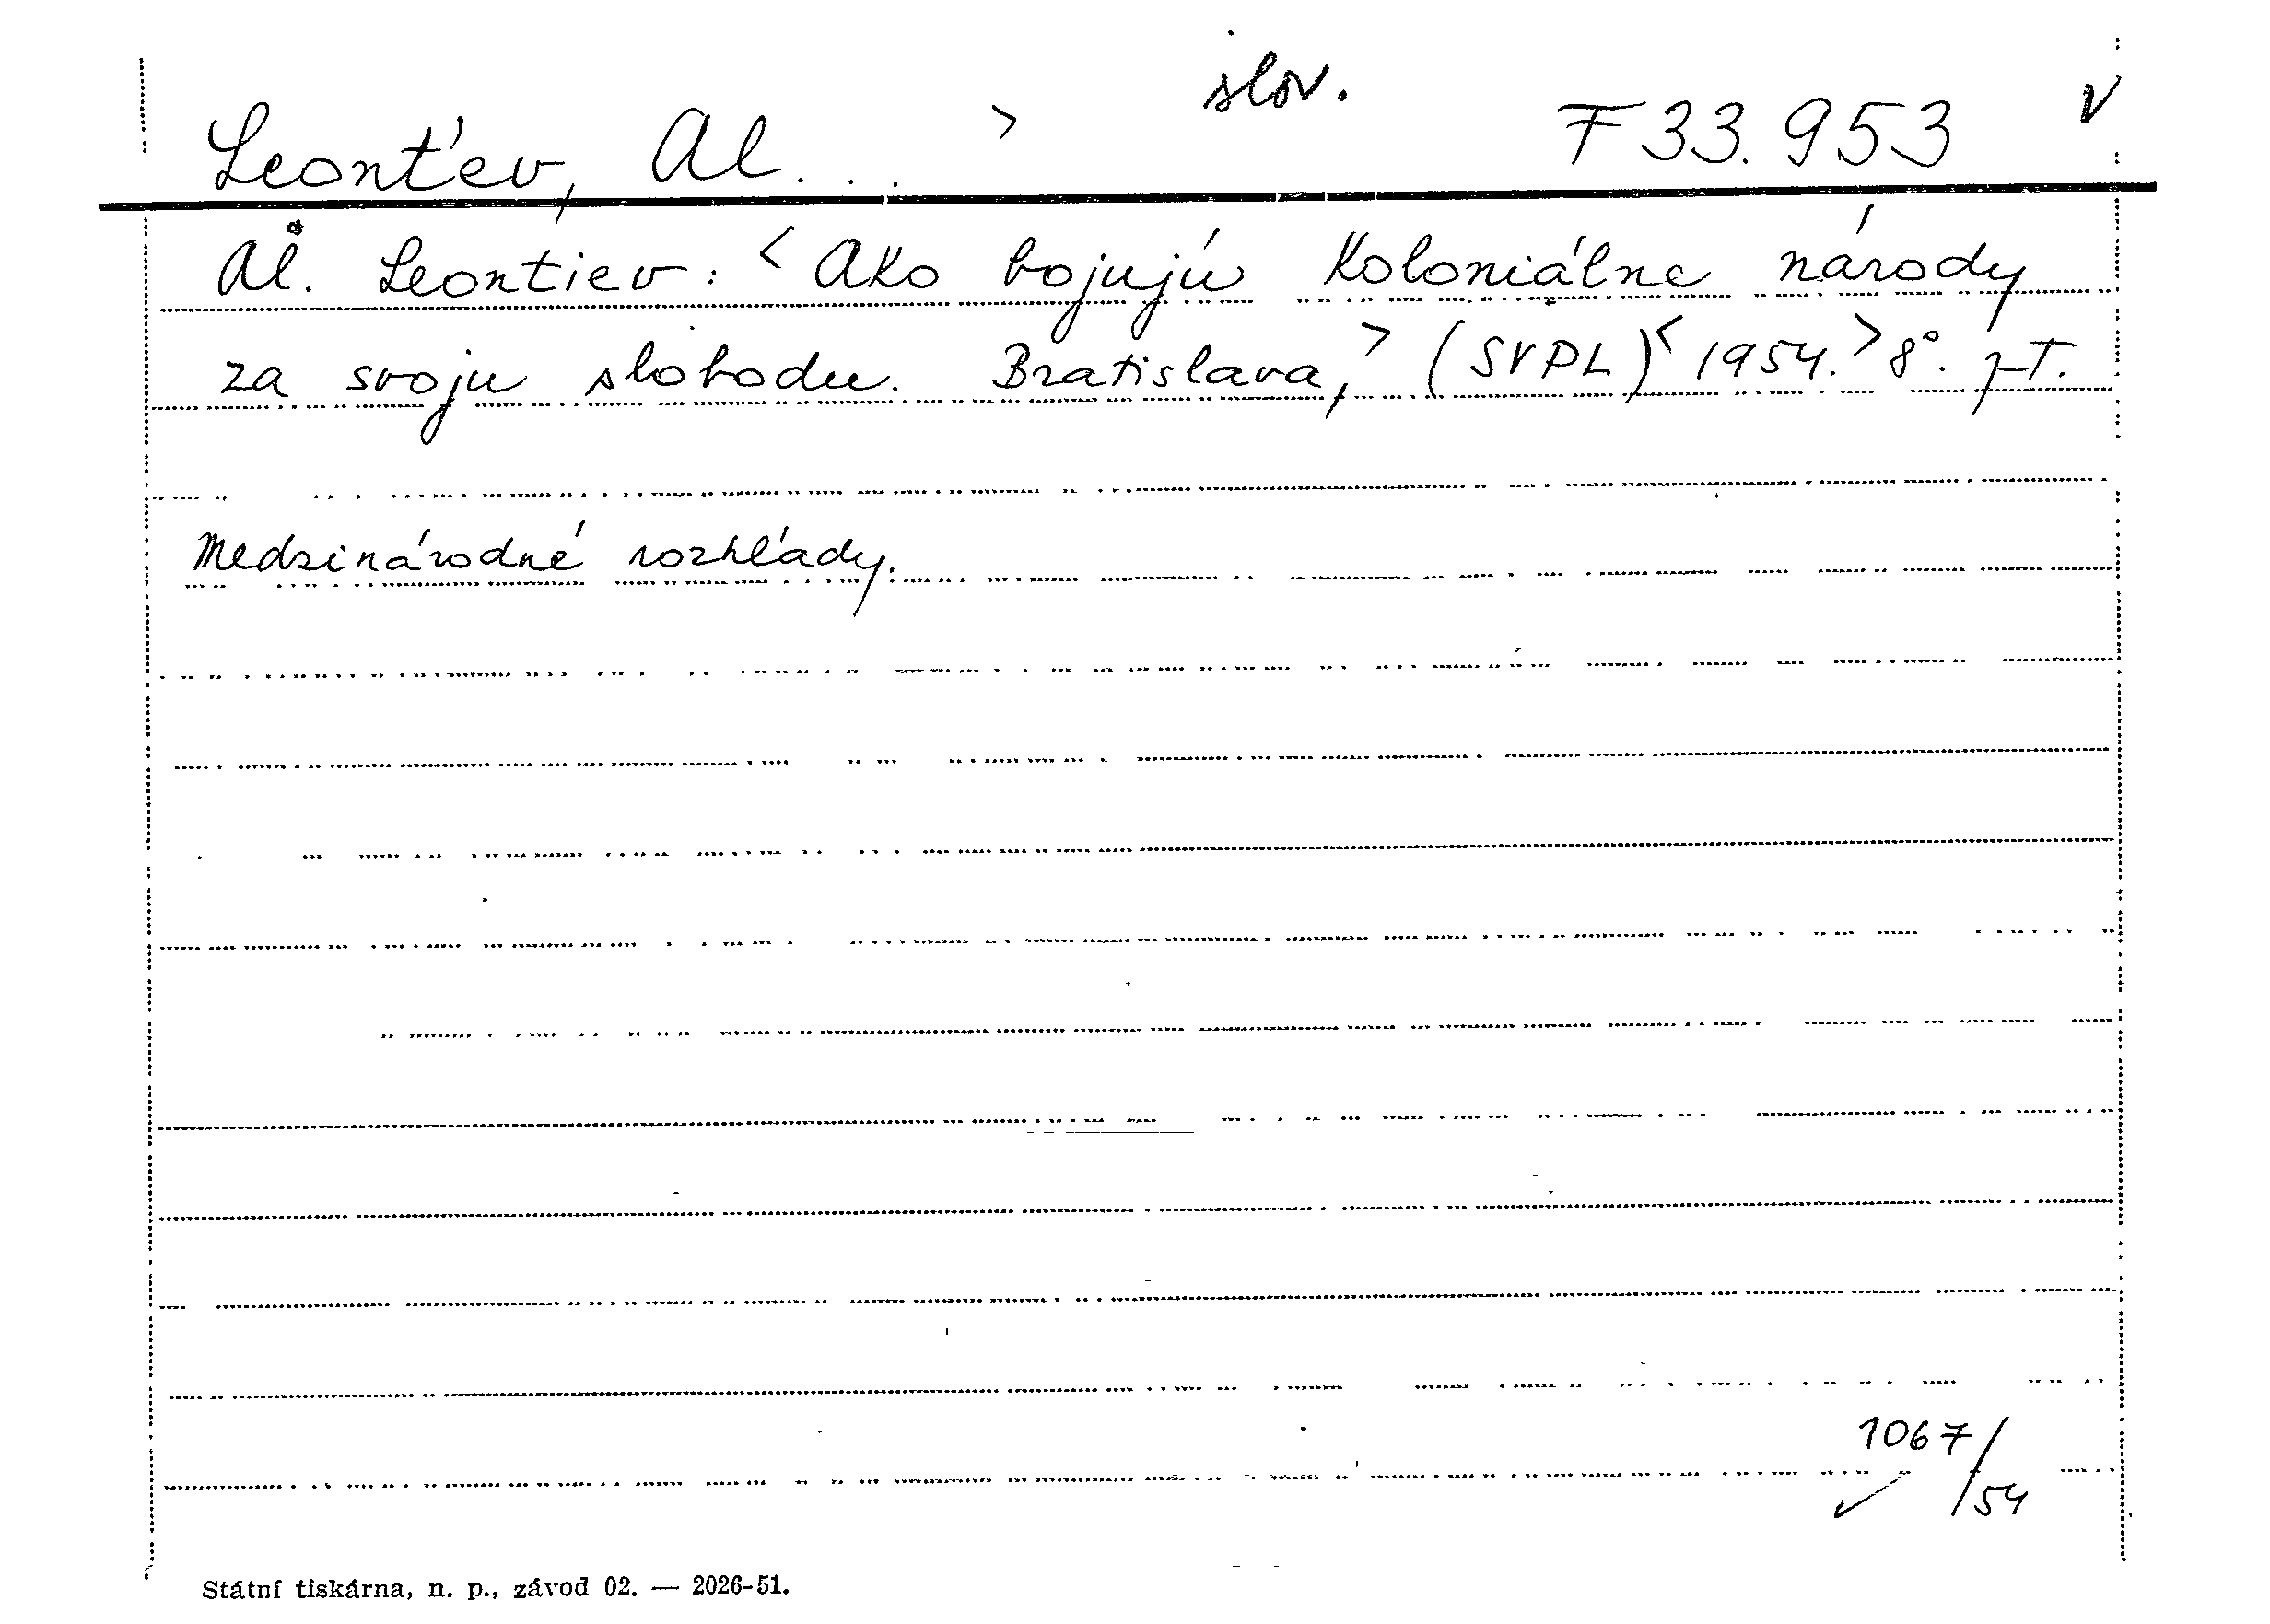 slov.
Leonťev, Al... > F 33.953 V
Al. Leontiev: < Ako bojujú koloniálne národy
za svoju slobodu. Bratislava, > (SVPL) < 1954. > 8°.
Medzinárodné rozhľady.
1067/54
Státní tiskárna, n. p., závod 02. — 2026-51.